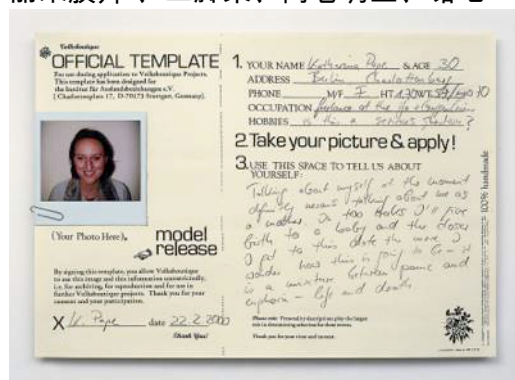 Volksboutique
OFFICIAL TEMPLATE
For use during application to Volksboutique Projects.
This template has been designed for
the Institut für Auslandsbeziehungen e.V.
[ Charlottenplatz 17, D-70173 Stuttgart, Germany].
(Your Photo Here),
model
release
By signing this template, you allow Volksboutique
to use this image and this information unrestrictedly,
i.e. for archiving, for reproduction and for use in
further Volksboutique projects. Thank you for your
consent and your participation.
X K. Pape date 22.2.2000
(Thank You!)
1. YOUR NAME Katharina Pape & AGE 30
ADDRESS Berlin Charlottenburg
PHONE M/F F HT 1.70 WT
OCCUPATION freelance at the
HOBBIES is this a serious question?
2. Take your picture & apply!
3. USE THIS SPACE TO TELL US ABOUT
YOURSELF:
Talking about myself at the moment
definitely means talking about me as
a mother. In two weeks I'll give
birth to a baby and the closer
I get to this date the more I
wonder how this is going to be – it
is a mixture between panic and
euphoria – life and death
Please note: Personal by description play the largest
role in determining selection for these events.
Thank you for your time and interest.
100% handmade